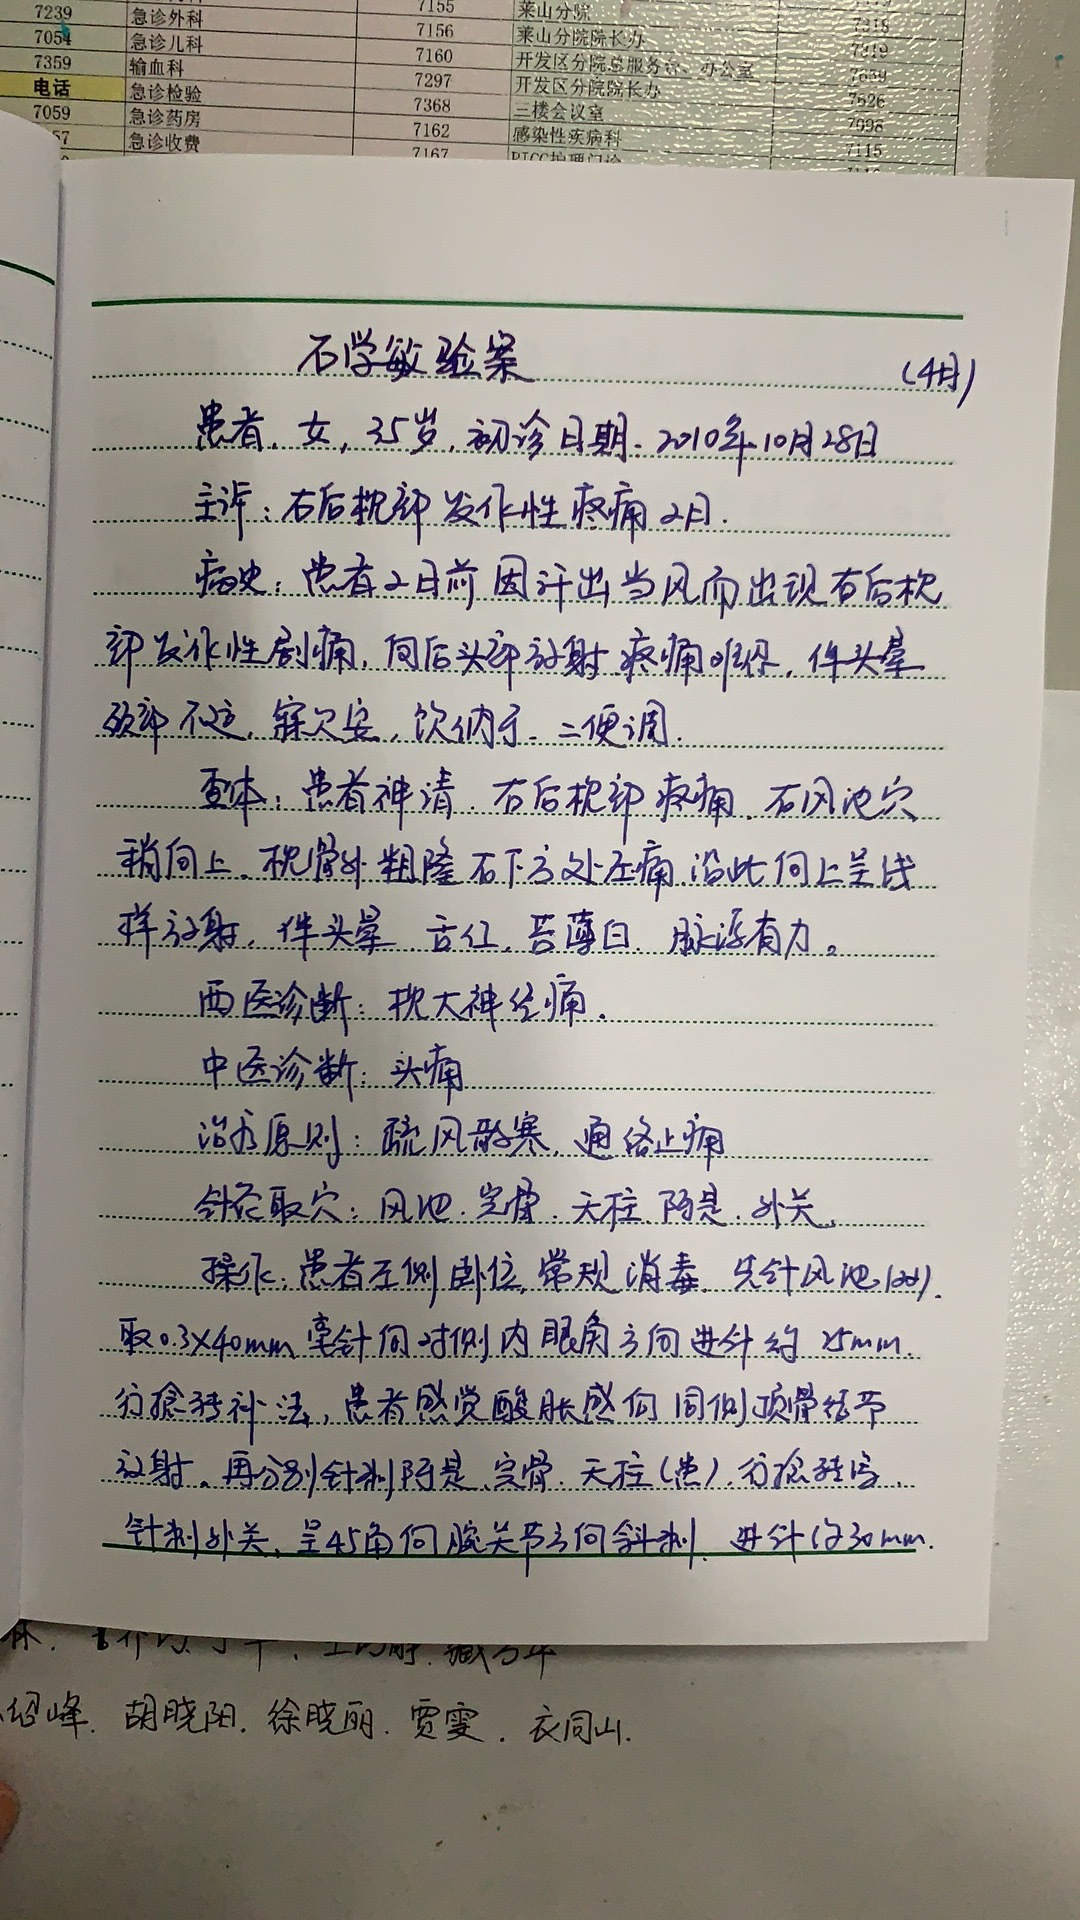 7239 急诊外科 7155 莱山分院
7054 急诊儿科 7156 莱山分院院长办 7318
7359 输血科 7160 开发区分院总服务台、办公室 7319
电话 急诊检验 7297 开发区分院院长办 7659
7059 急诊药房 7368 三楼会议室 7626
57 急诊收费 7162 感染性疾病科 7098
7167 PICC护理门诊 7115
石学敏验案
(4月)
患者,女,35岁,初诊日期:2010年10月28日
主诉:右后枕部发作性疼痛2月.
病史:患者2日前因汗出当风而出现右后枕
部发作性剧痛,向后头部放射,疼痛难忍,伴头晕
颈部不适,寐欠安,饮纳可.二便调.
查体:患者神清.右后枕部疼痛.右风池穴
稍向上.枕骨外粗隆右下方处压痛.沿此向上呈线
样放射,伴头晕 舌红,苔薄白.脉浮有力。
西医诊断:枕大神经痛.
中医诊断:头痛
治疗原则:疏风散寒,通络止痛
针灸取穴:风池.完骨.天柱.阿是.外关.
操作:患者左侧卧位,常规消毒.先针风池(双).
取0.3×40mm毫针向对侧内眼角方向进针约25mm.
行捻转补法,患者感觉酸胀感向同侧顶骨结节
放射.再分别针刺阿是.完骨.天柱(患).行捻转泻.
针刺外关,呈45角向腕关节方向斜刺.进针约30mm.
峰.胡晓阳.徐晓丽.贾雯.衣同山.